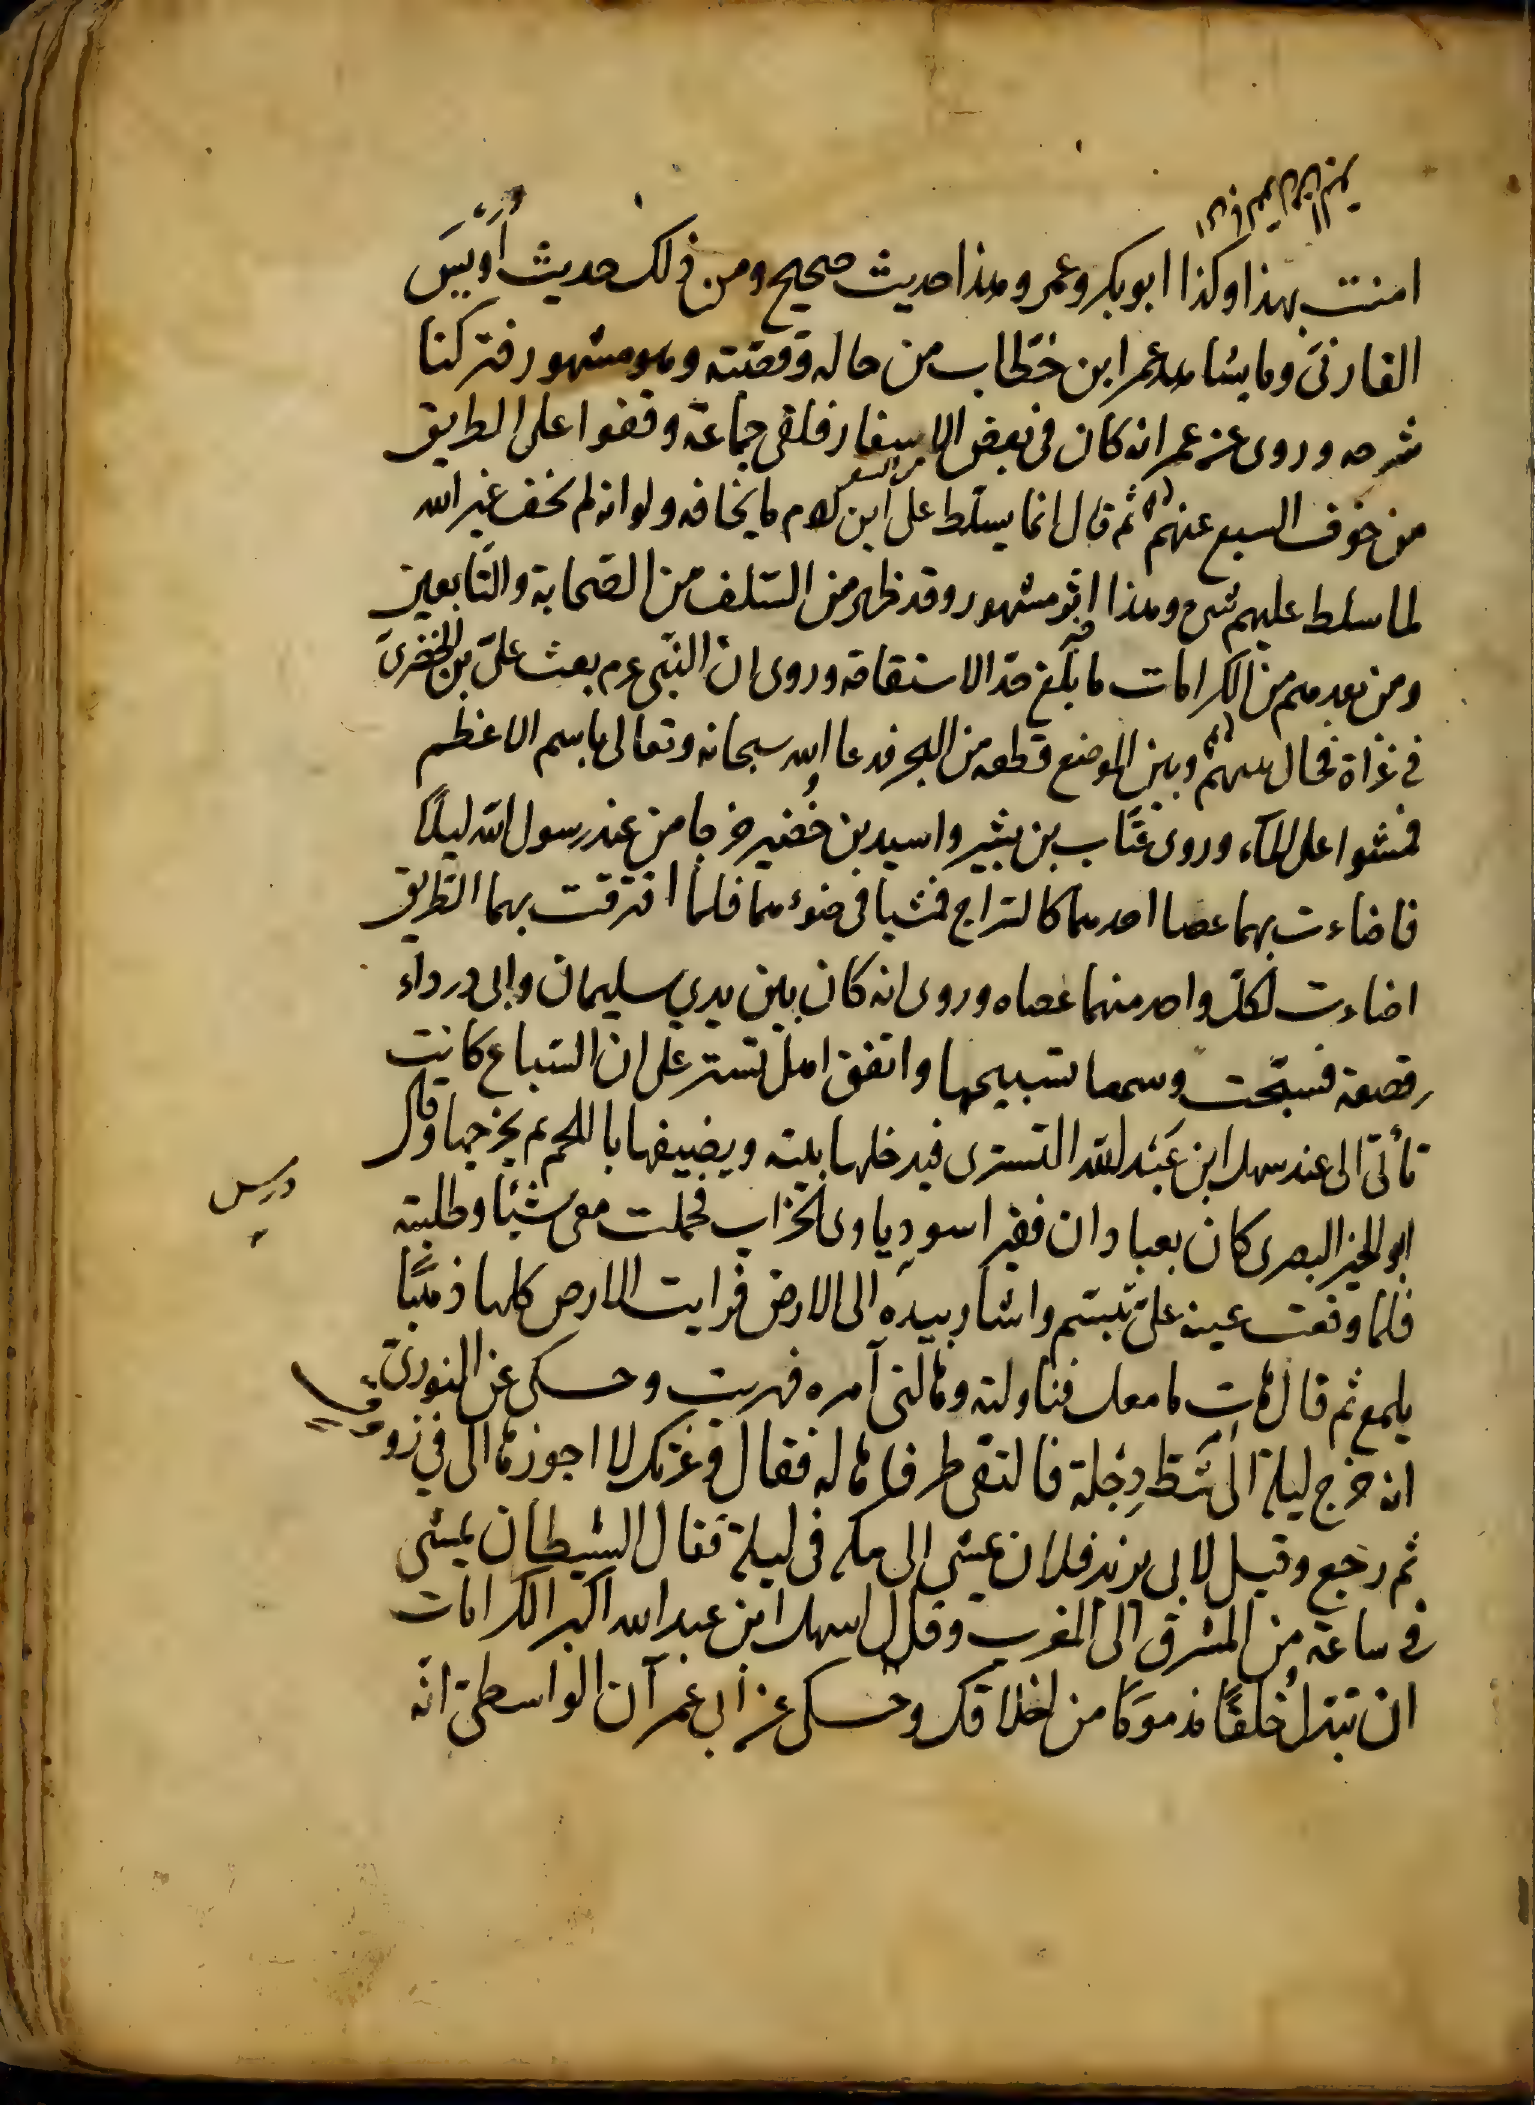 امنت بهذا وكذا ابو بكر وعمر وهذا حديث صحيح ومن ذلك حديث أُوَيس
القارنىّ وما يشاهد عمر ابن خطّاب من حاله وقصّته وهو مشهور فتركنا
شرحه وروى عن عمر انه كان فى بعض الاسفار فلقى جماعة وقفوا على الطريق
من خوف السبع عنهم ثم قال انما يسلّط على ابن ادم ما يخافه ولو انه لم يخف غير الله
لما سلط عليهم شىء وهذا اثر مشهور وقد ظهر من السّلف من الصّحابة والتّابعين
ومن بعدهم من الكرامات ما بلغ حدّ الاستقامة وروى ان النّبى عم بعث علىّ بن الحضرىّ
فى غزاة فحال بينهم وبين الموضع قطعه من البحر فدعا الله سبحانه وتعالى باسم الاعظم
فمشوا على المآء وروى عتّاب بن بشير واسيد بن حُضير خرجا من عند رسول الله ليلًا
فاضاءت بهما عصا احدهما كالسّراج فمشيا فى ضوءهما فلما افترقت بهما الطّريق
اضاءت لكلّ واحد منهما عصاه وروى انه كان بين يدي سليمان وابى درداء
قصعة فسبّحت وسمعا تسبيحها واتفق اهل تستر على ان السّباع كانت
تأتى الى عند سهل ابن عَبْد الله التسترى فيدخلها بيته ويضيفها باللحم ثم يخرجها وقال
ابو الخير البصرى كان بعبادان فقيرا سود ياوى الخراب فحملت معى شيئا وطلبته
فلما وقعت عينه علىّ تبسّم واشار بيده الى الارض فرايت الارض كلها ذهبًا
يلمع ثم قال هات ما معك فناولته وهالنى آمره فهربت وحكى عن النورىّ
انه خرج ليلة الى شَطّ دِجْلة فالتقى طرفاها له فقال وعزتك لا اجوزها الى فى زورق
ثم رجع وقيل لابى يزيد فلان يمشى الى مكه فى ليلة فقال الشيطان يمشى
فى ساعة من المشرق الى المغرب وقال سهل ابن عبد الله اكبر الكرامات
ان تبدّل خُلقًا مذمومًا من اخلاقك وحكى عن أبى عمرآن الواسطىّ انّه
درس